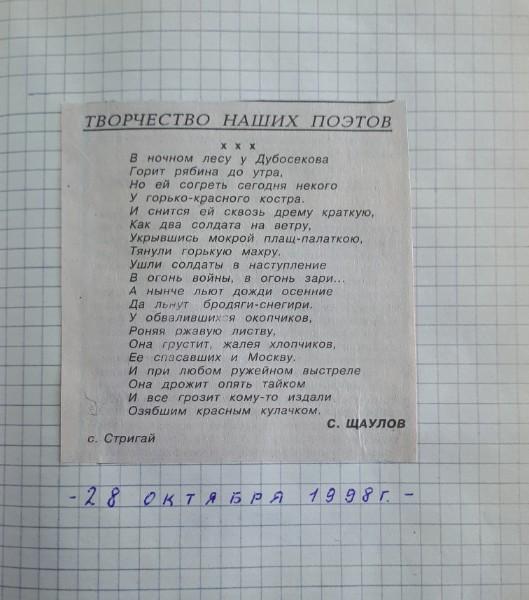 ТВОРЧЕСТВО НАШИХ ПОЭТОВ
х х х
В ночном лесу у Дубосекова
Горит рябина до утра,
Но ей согреть сегодня некого
У горько-красного костра.
И снится ей сквозь дрему краткую,
Как два солдата на ветру,
Укрывшись мокрой плащ-палаткою,
Тянули горькую махру.
Ушли солдаты в наступление
В огонь войны, в огонь зари...
А нынче льют дожди осенние
Да льнут бродяги-снегири.
У обвалившихся окопчиков,
Роняя ржавую листву,
Она грустит, жалея хлопчиков,
Ее спасавших и Москву.
И при любом ружейном выстреле
Она дрожит опять тайком
И все грозит кому-то издали
Озябшим красным кулачком.
С. ЩАУЛОВ
с. Стригай
- 28 октября 1998 г. -